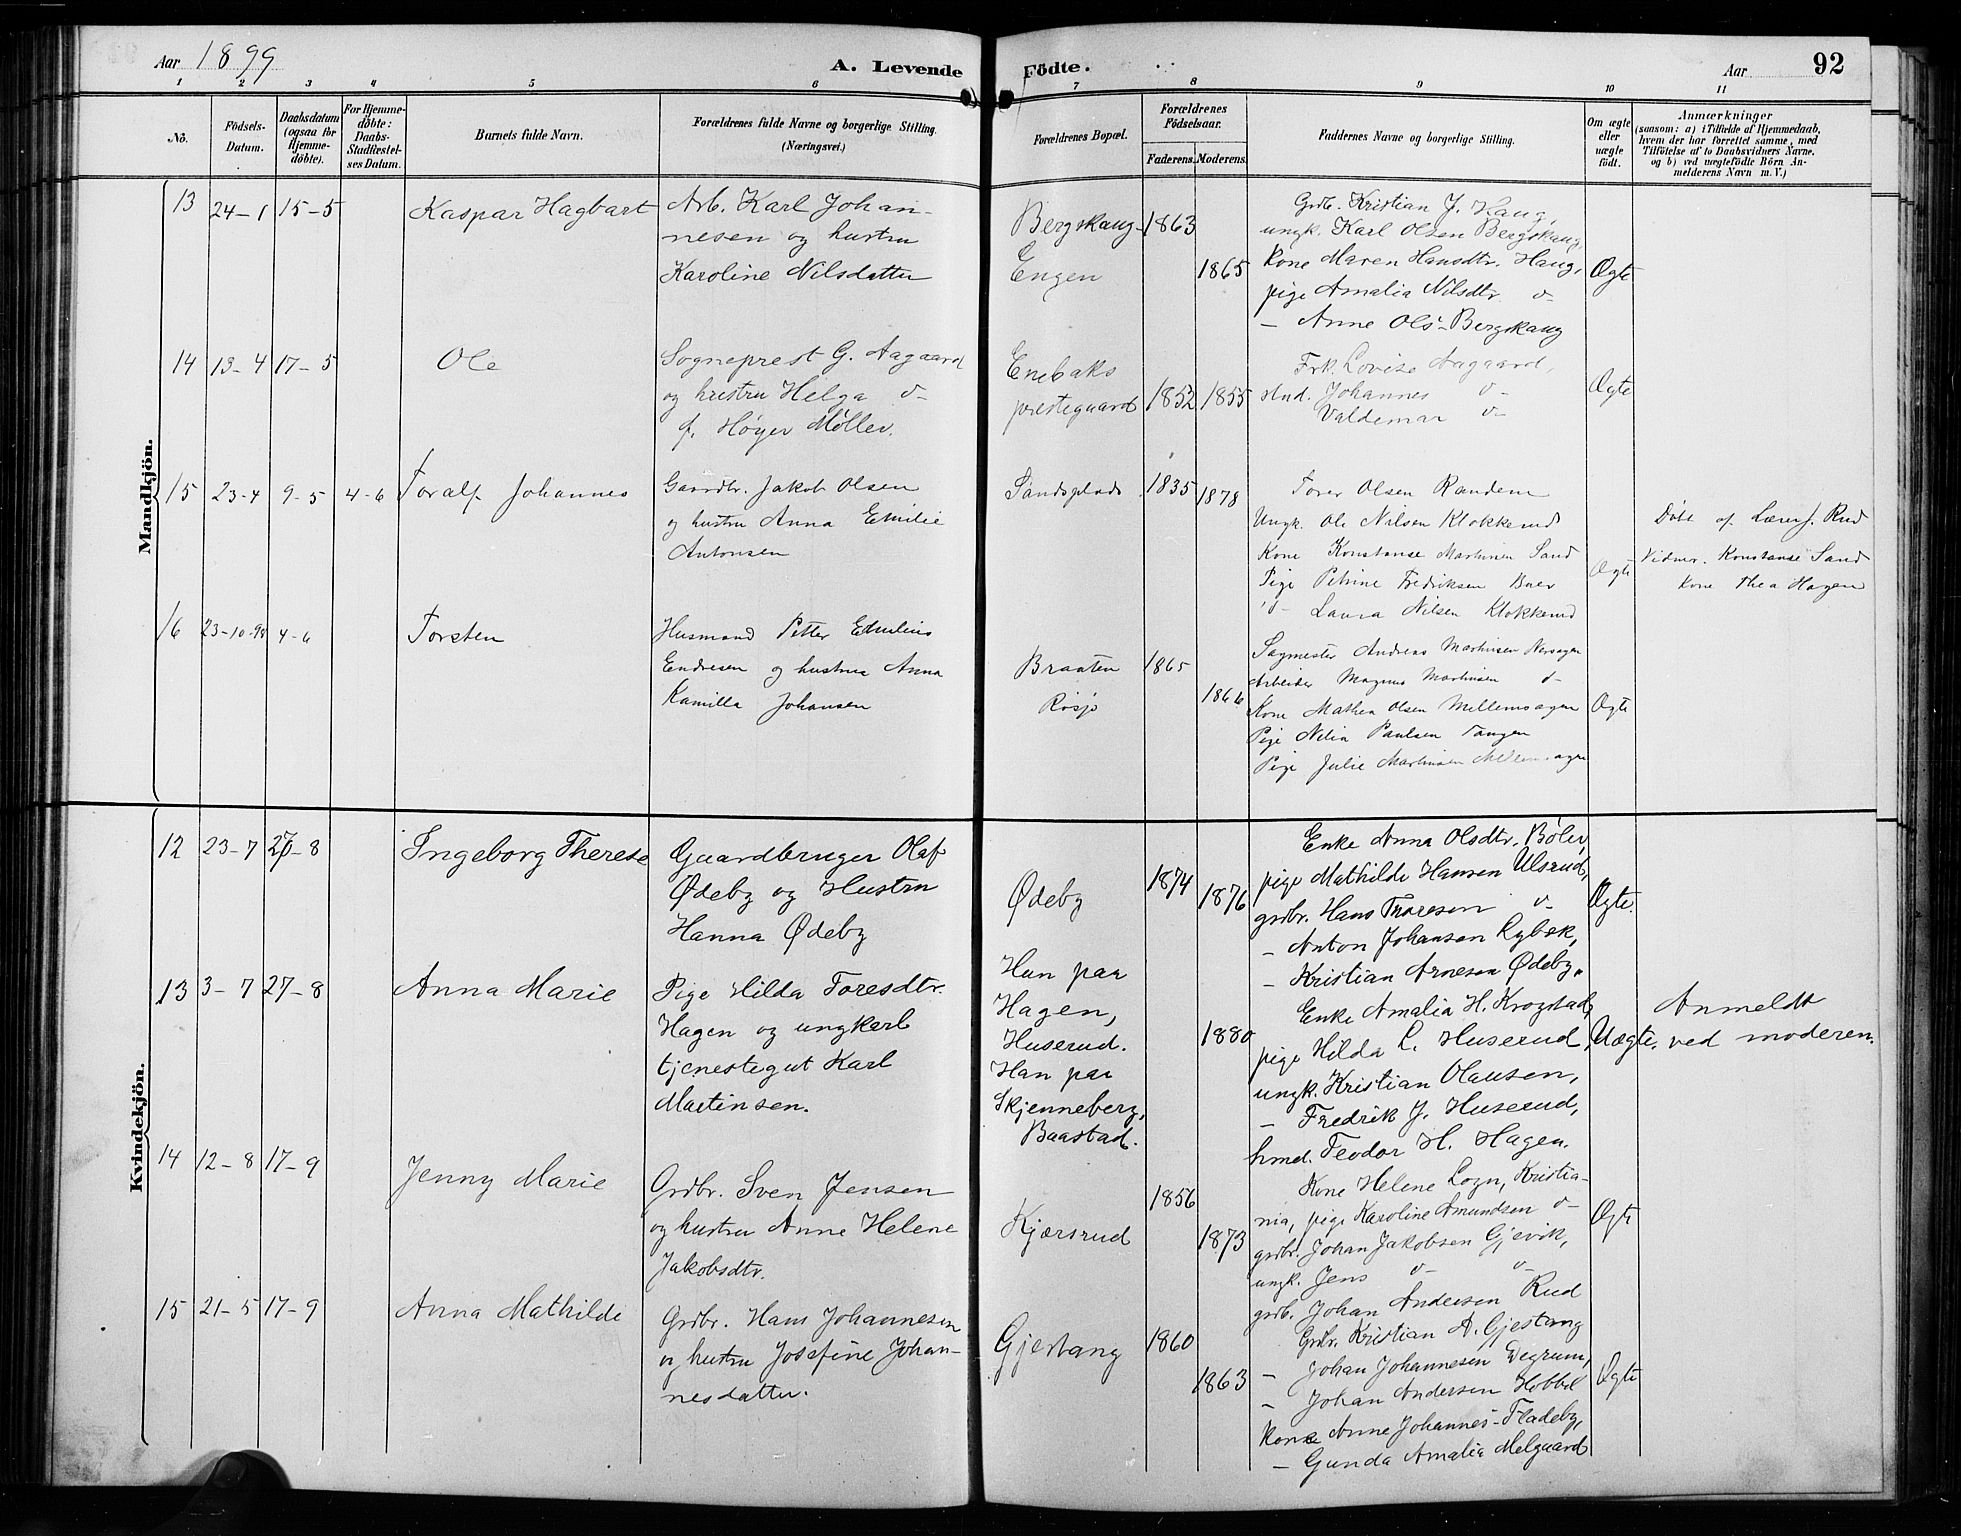 Aar 1899
A. Levende Födte.
Aar
92
1 2 3 4 5 6 7 8 9 10 11
No.
Födsels-Datum.
Daabsdatum (ogsaa for Hjemmedöbte).
For Hjemmedöbte: Daabs-Stadfæstelses Datum.
Barnets fulde Navn.
Forældrenes fulde Navne og borgerlige Stilling. (Næringsvei.)
Forældrenes Bopæl.
Forældrenes Födselsaar.
Faderens. Moderens.
Faddernes Navne og borgerlige Stilling.
Om ægte eller uægte födt.
Anmærkninger
(saasom: a) i Tilfælde af Hjemmedaab, hvem der har forrettet samme, med Tilföielse af to Daabsvidners Navne, og b) ved uægtefödte Börn Anmelderens Navn m. V.)
Mandkjön.
13 24-1 15-5 Kaspar Hagbart
Arb. Karl Johan-
nesen og hustru
Karoline Nilsdatter
Bergskaug-
Engen
1863
1865
Grdb. Kristian J. Haug,
ungk. Karl Olsen Bergskaug,
kone Maren Hansdtr. Haug,
pige Amalia Nilsdtr. d-
- Anne Ols- Bergskaug
Ægte
14 13-4 17-5 Ole
Sogneprest G. Aagaard
og hustru Helga d-
f. Høyer Møller.
Enebaks
prestegaard
1852 1855
Frk. Lovise Aagaard,
stud. Johannes d-
Valdemar d-
Ægte
15 23-4 9-5 4-6 Toralf Johannes
Gaardbr. Jakob Olsen
og hustru Anna Emilie
Antonsen
Sandsplads
1835 1878
Torer Olsen Randem
Ungk. Ole Nilsen Klokkerud
Kone Konstanse Martinsen Sand
Pige Petrine Fredriksen Buer
d- Laura Nilsen Klokkerud
Ægte
Døbt af Lærer J. Rud
Vidner. Konstanse Sand
Kone Thea Hagen
16 23-10-98 4-6 Torsten
Husmand Petter Emilius
Endresen og hustru Anna
Kamilla Johansen
Braaten
Røsjø
1865
1866
Sagmester Andreas Martinsen Nersagen
Arbeider Magnus Martinsen d-
Kone Mathea Olsen Mellemsagen
Pige Nilia Paulsen Tangen
Pige Julie Martinsen Mellemsagen
Ægte
Kvindekjön.
12 23-7 27-8 Ingeborg Therese
Gaardbruger Olaf
Ødeby og Hustru
Hanna Ødeby
Ødeby
1874
1876
Enke Anna Olsdtr. Bøler,
pige Mathilde Hansen Ulsrud,
grdbr. Hans Thoresen d-
- Anton Johansen Rybæk,
- Kristian Arnesen Ødeby.
Ægte.
13 3-7 27-8 Anna Marie
Pige Hilda Toresdtr.
Hagen og ungkarl
tjenestegut Karl
Martinsen.
Hun paa
Hagen,
Huserud.
Han paa
Skjenneberg,
Baastad.
1880
Enke Amalia H. Krogstad,
pige Hilda L. Huserud,
ungk. Kristian Olausen,
- Fredrik J. Huserud,
hmd. Teodor H. Hagen.
Uægte.
Anmeldt
ved moderen.
14 12-8 17-9 Jenny Marie
Grdbr. Sven Jensen
og hustru Anne Helene
Jakobsdtr.
Kjærsrud
1856
1873
Kone Helene Lozn, Kristia-
nia, pige Karoline Amundsen d-
grdbr. Johan Jakobsen Gjevik,
ungk. Jens d- d-
grdb. Johan Andersen Rud
Ægte
15 21-5 17-9 Anna Mathilde
Grdbr. Hans Johannesen
og hustru Josefine Johan-
nesdatter.
Gjestang
1860
1863
Grdbr. Kristian A. Gjestang
- Johan Johannesen Degrum,
- Johan Andersen Hobbel
kone Anne Johannes- Fladeby,
- Gunda Amalia Melgaard
Ægte